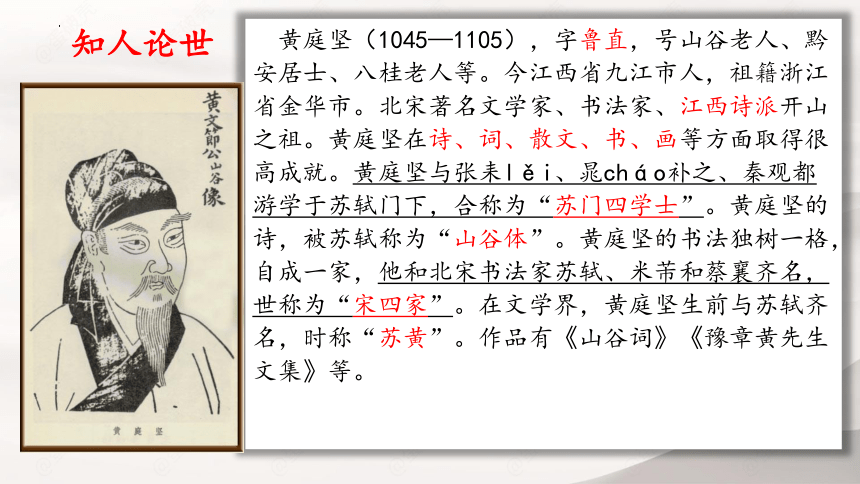 知人论世
黄文节公山谷
像
黄 庭 坚
黄庭坚（1045—1105），字鲁直，号山谷老人、黔
安居士、八桂老人等。今江西省九江市人，祖籍浙江
省金华市。北宋著名文学家、书法家、江西诗派开山
之祖。黄庭坚在诗、词、散文、书、画等方面取得很
高成就。黄庭坚与张耒lěi、晁cháo补之、秦观都
游学于苏轼门下，合称为“苏门四学士”。黄庭坚的
诗，被苏轼称为“山谷体”。黄庭坚的书法独树一格，
自成一家，他和北宋书法家苏轼、米芾和蔡襄齐名，
世称为“宋四家”。在文学界，黄庭坚生前与苏轼齐
名，时称“苏黄”。作品有《山谷词》《豫章黄先生
文集》等。